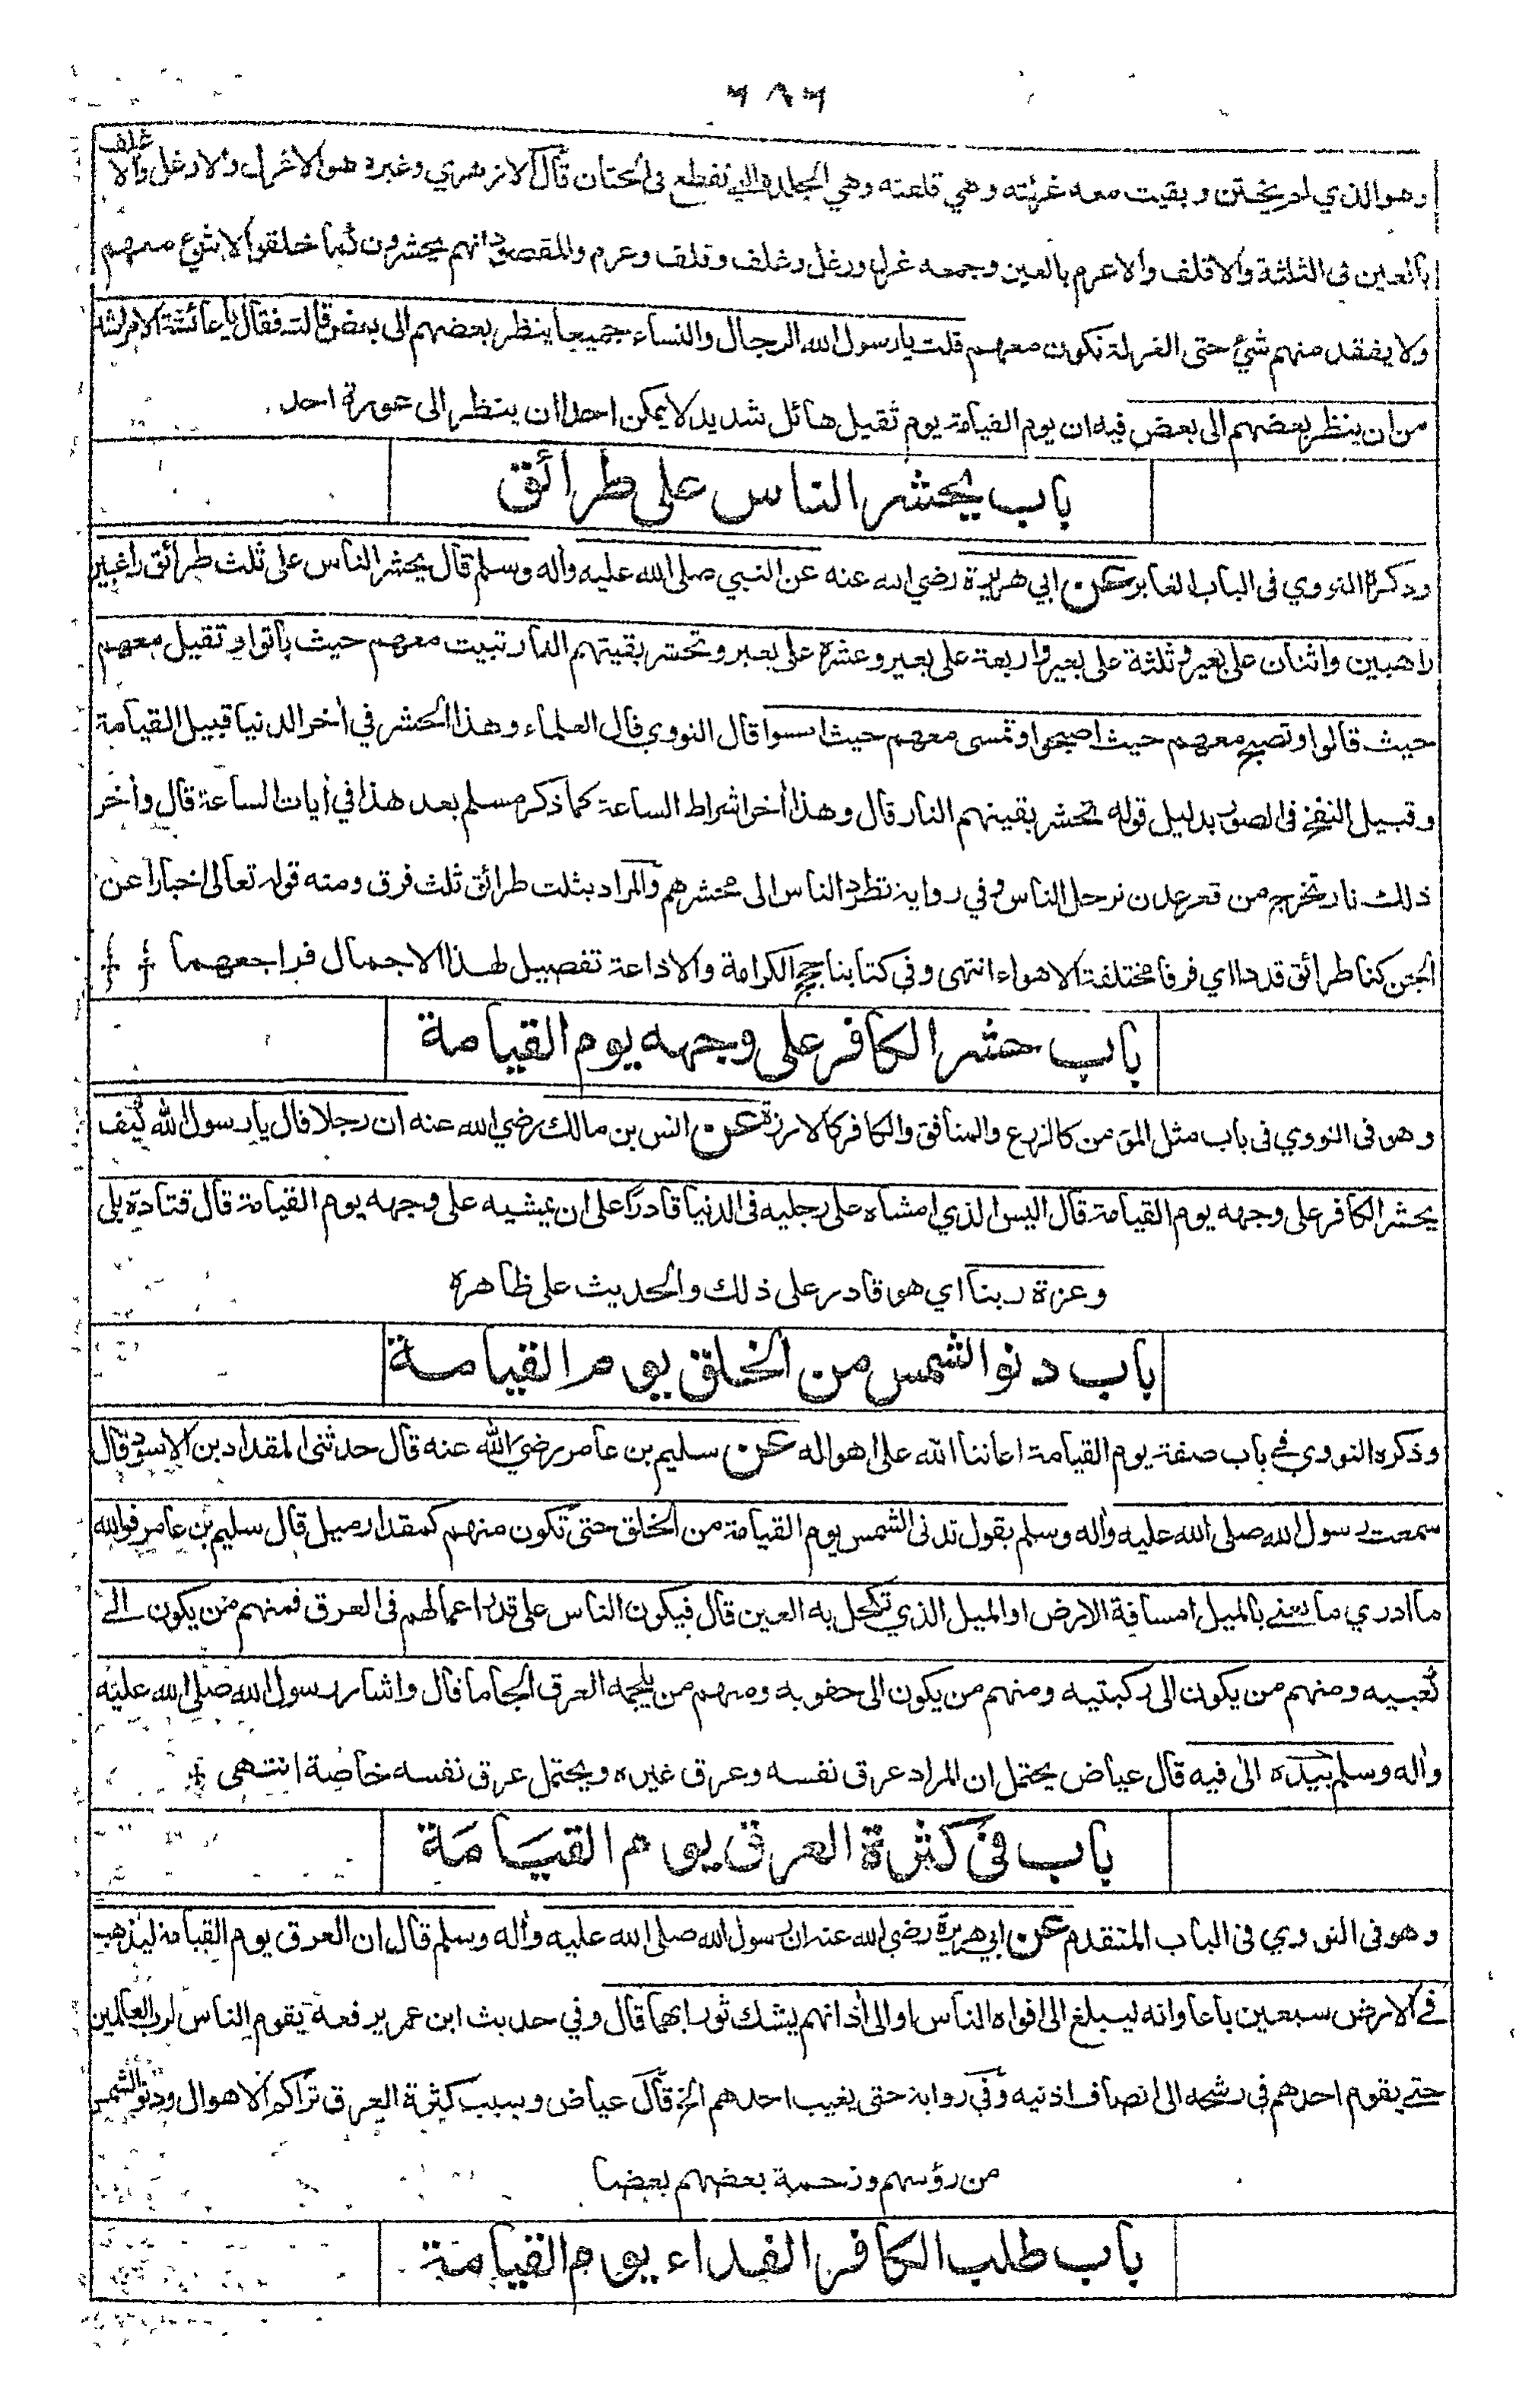 ٦٨٦
وهو الذي لم يختتن وبقيت معه غرلته وهي قلفته وهي الجلدة التي تقطع في الختان قال الازهري وغيره هو الاغرل والارغل والاغلف
بالغين في الثلثة والاقلف والاعرم بالعين وجمعه غرل ورغل وغلف وقلف وعرم والمقصود انهم يحشرون كما خلقوا لا شيء معهم
ولا يفقد منهم شيء حتى الغرلة تكون معهم قلت يا رسول الله الرجال والنساء جميعا ينظر بعضهم الى بعض قالت فقال يا عائشة الامر اشد
من ان ينظر بعضهم الى بعض فيه ان يوم القيامة يوم ثقيل هائل شديد لا يمكن احدا ان ينظر الى عورة احد
باب يحشر الناس على طرائق
وذكره النووي في الباب الغابر عن ابي هريرة رضي الله عنه عن النبي صلى الله عليه وآله وسلم قال يحشر الناس على ثلث طرائق راغبين
راهبين واثنان على بعير وثلثة على بعير واربعة على بعير وعشرة على بعير وتحشر بقيتهم النار تبيت معهم حيث باتوا وتقيل معهم
حيث قالوا وتصبح معهم حيث اصبحوا وتمسى معهم حيث امسوا قال النووي قال العلماء وهذا الحشر في أخر الدنيا قبيل القيامة
وقبيل النفخ في الصور بدليل قوله تحشر بقيتهم النار قال وهذا أخر اشراط الساعة كما ذكر مسلم بعد هذا في أيات الساعة قال وأخر
ذلك نار تخرج من قعر عدن ترحل الناس وفي رواية تطرد الناس الى محشرهم والمراد بثلث طرائق ثلث فرق ومنه قوله تعالى اخبارا عن
الجن كنا طرائق قددا اي فرقا مختلفة الاهواء انتهى وفي كتابنا حجج الكرامة والاذاعة تفصيل لهذا الاجمال فراجعهما
باب حشر الكافر على وجهه يوم القيامة
وهو في النووي في باب مثل المؤمن كالزرع والمنافق والكافر كالارزة عن انس بن مالك رضي الله عنه ان رجلا قال يا رسول الله كيف
يحشر الكافر على وجهه يوم القيامة قال اليس الذي امشاه على رجليه في الدنيا قادرا على ان يمشيه على وجهه يوم القيامة قال قتادة بلى
وعزة ربنا اي هو قادر على ذلك والحديث على ظاهره
باب دنو الشمس من الخلق يوم القيامة
وذكره النووي في باب صفة يوم القيامة اعاننا الله على اهواله عن سليم بن عامر رضي الله عنه قال حدثني المقداد بن الاسود قال
سمعت رسول الله صلى الله عليه وأله وسلم يقول تدنى الشمس يوم القيامة من الخلق حتى تكون منهم كمقدار ميل قال سليم بن عامر فوالله
ما ادري ما يعني بالميل امسافة الارض او الميل الذي تكحل به العين قال فيكون الناس على قدر اعمالهم في العرق فمنهم من يكون الى
كعبيه ومنهم من يكون الى ركبتيه ومنهم من يكون الى حقويه ومنهم من يلجمه العرق الجاما قال واشار رسول الله صلى الله عليه
وأله وسلم بيده الى فيه قال عياض يحتمل ان المراد عرق نفسه وعرق غيره ويحتمل عرق نفسه خاصة انتهى
باب في كثرة العرق يوم القيامة
وهو في النووي في الباب المتقدم عن ابي هريرة رضي الله عنه ان رسول الله صلى الله عليه وأله وسلم قال ان العرق يوم القيامة ليذهب
في الارض سبعين باعا وانه ليبلغ الى افواه الناس او الى أذانهم يشك ثور ايهما قال وفي حديث ابن عمر يرفعه يقوم الناس لرب العالمين
حتى يقوم احدهم في رشحه الى انصاف اذنيه وفي رواية حتى يغيب احدهم الخ قال عياض وسبب كثرة العرق تراكم الاهوال ودنو الشمس
من رؤسهم وزحمة بعضهم بعضا
باب طلب الكافر الفداء يوم القيامة